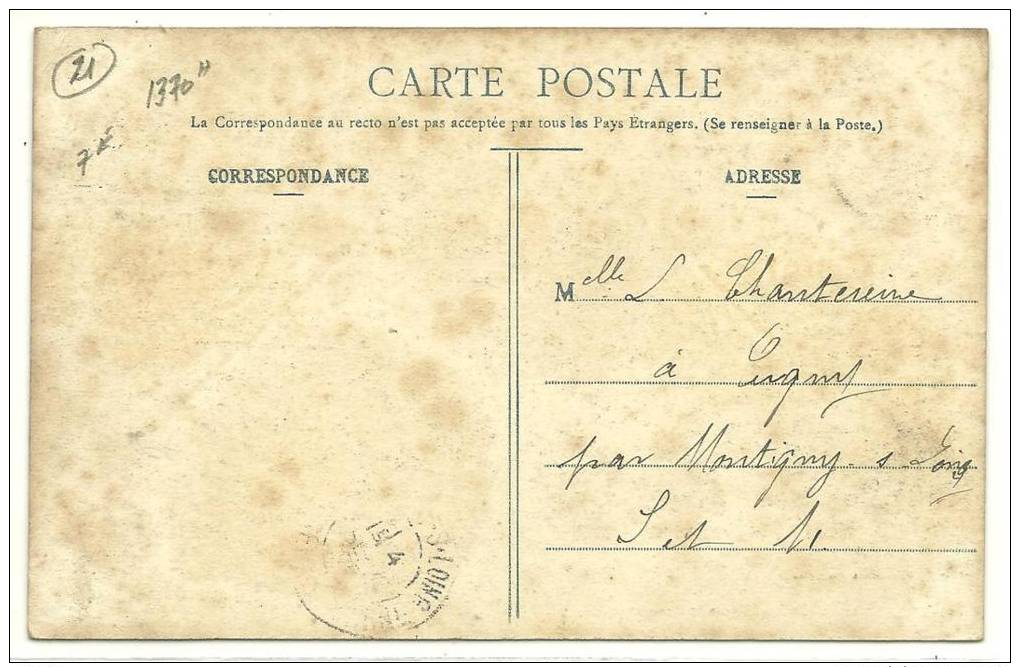 21
1370"
7€
CARTE POSTALE
La Correspondance au recto n'est pas acceptée par tous les Pays Étrangers. (Se renseigner à la Poste.)
CORRESPONDANCE
ADRESSE
Melle L Chantereine
à
par Montigny s Loing
S et M.